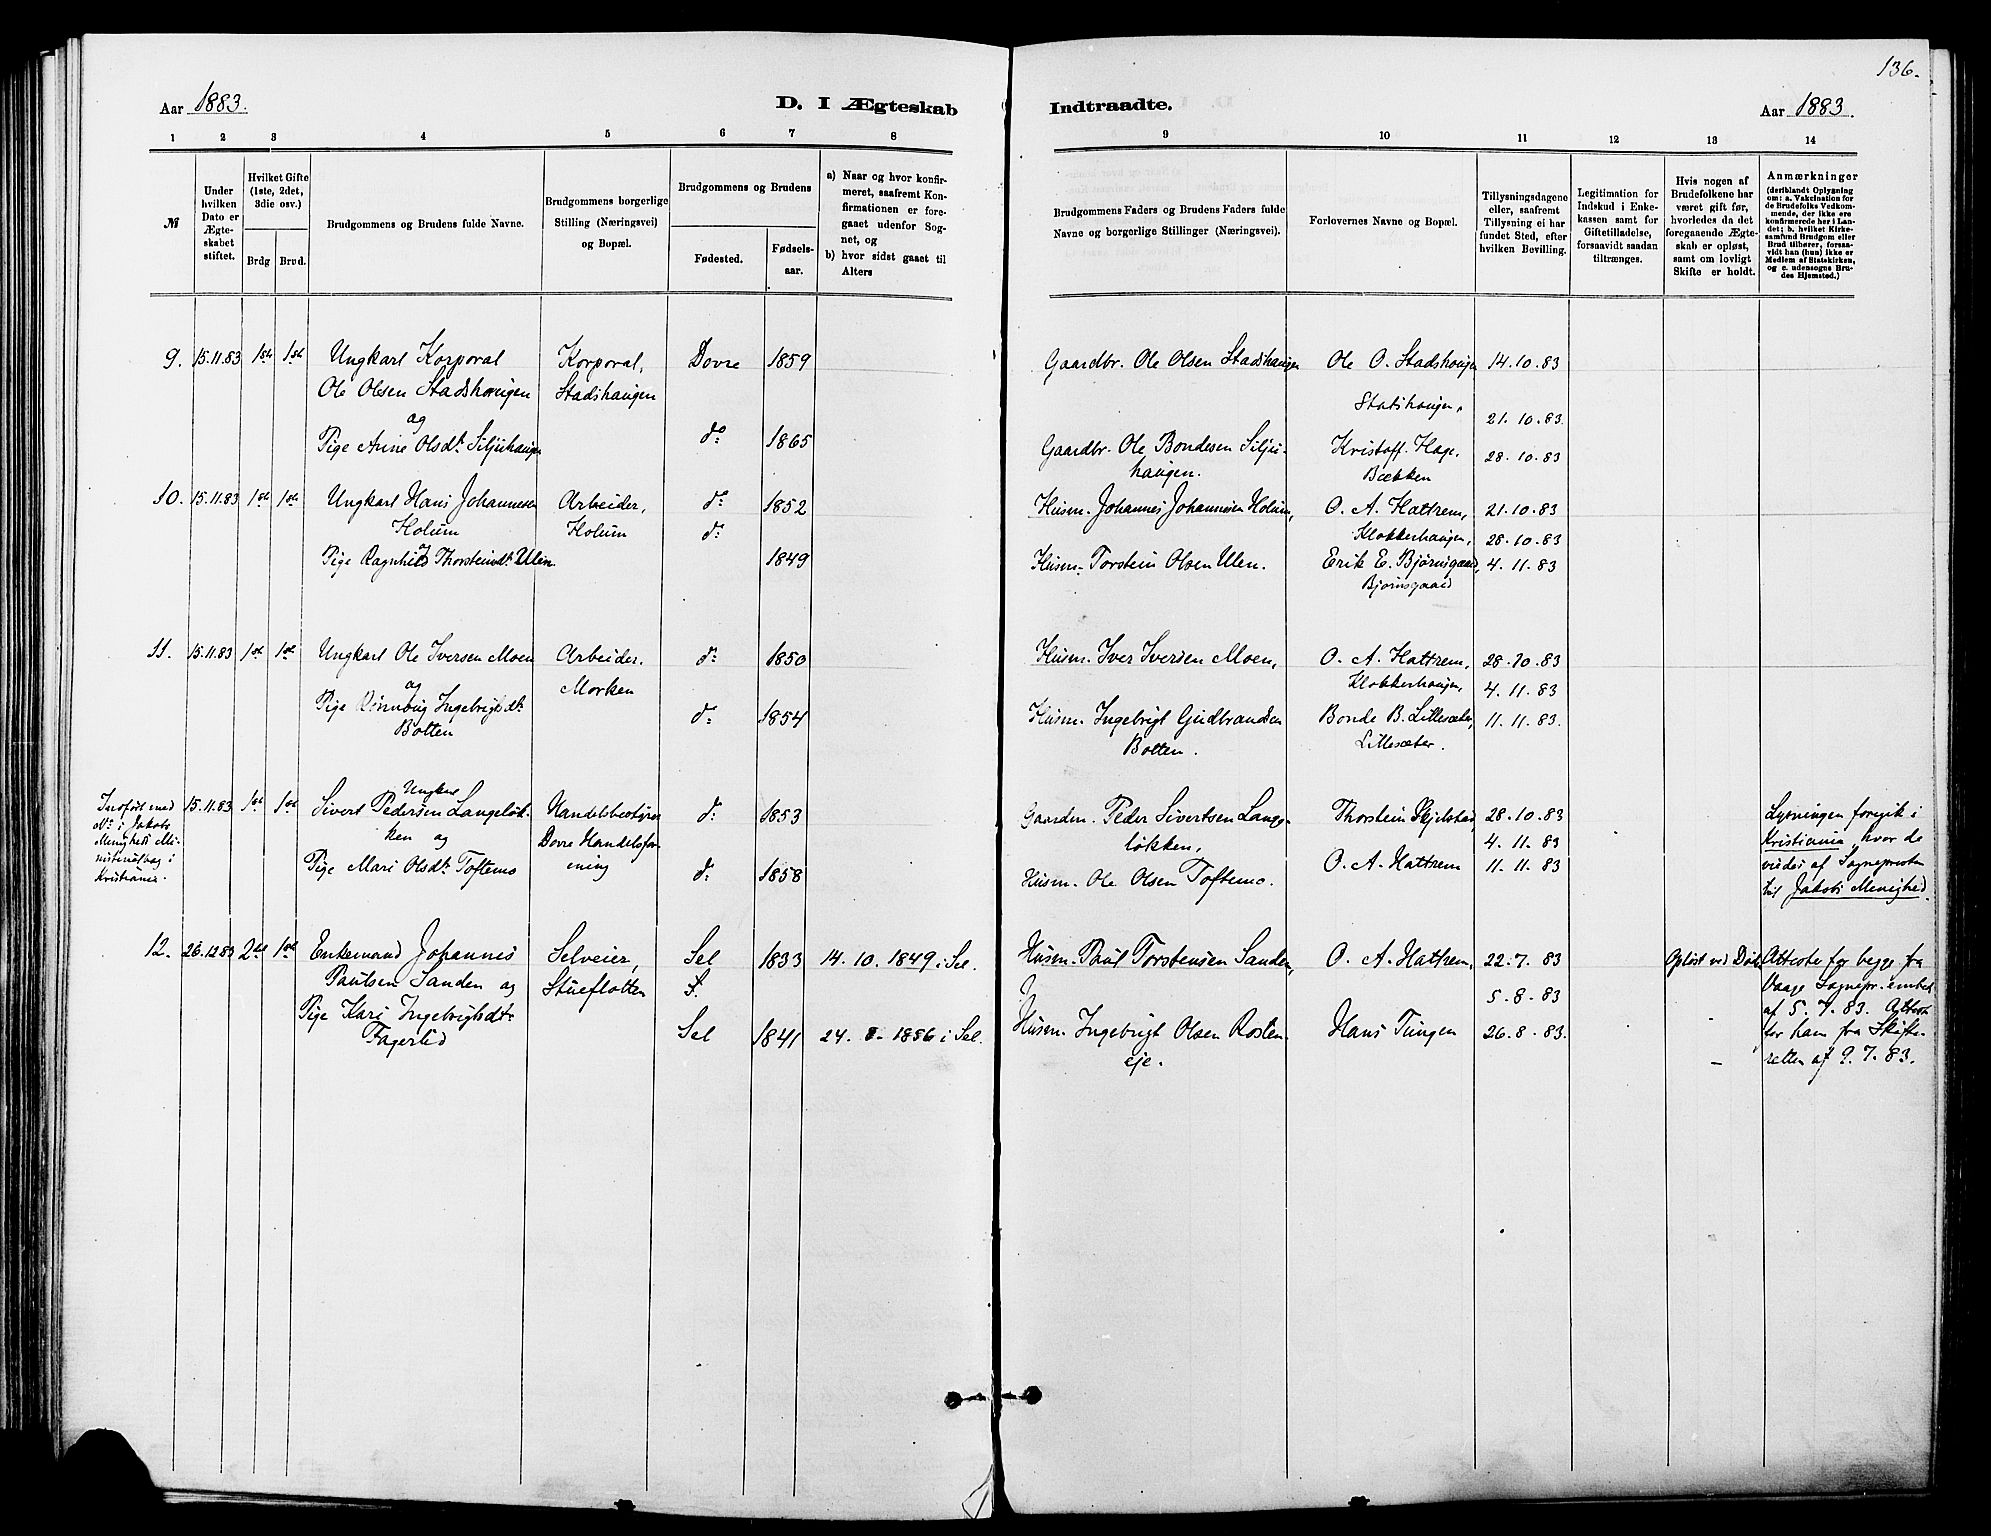 136.
Aar 1883.
D. I Ægteskab
Indtraadte.
Aar 1883.
1 2 3 4 5 6 7 8
9 10 11 12 13 14
№
Under
hvilken
Dato er
Ægte-
skabet
stiftet.
Hvilket Gifte
(1ste, 2det,
3die osv.)
Brdg Brud.
Brudgommens og Brudens fulde Navne.
Brudgommens borgerlige
Stilling (Næringsvei)
og Bopæl.
Brudgommens og Brudens
Fødested.
Fødsels-
aar.
a) Naar og hvor konfir-
meret, saafremt Kon-
firmationen er fore-
gaaet udenfor Sog-
net, og
b) hvor sidst gaaet til
Alters
Brudgommens Faders og Brudens Faders fulde
Navne og borgerlige Stillinger (Næringsvei).
Forlovernes Navne og Bopæl.
Tillysningsdagene
eller, saafremt
Tillysning ei har
fundet Sted, efter
hvilken Bevilling.
Legitimation for
Indskud i Enke-
kassen samt for
Giftetilladelse,
forsaavidt saadan
tiltrænges.
Hvis nogen af
Brudefolkene har
været gift før,
hvorledes da det
foregaaende Ægte-
skab er opløst,
samt om lovligt
Skifte er holdt.
Anmærkninger
(deriblandt Oplysning
om: a. Vakcination for
de Brudefolks Vedkom-
mende, der ikke ere
konfirmerede her i Lan-
det; b. hvilket Kirke-
samfund Brudgom eller
Brud tilhører, forsaa-
vidt han (hun) ikke er
Medlem af Statskirken,
og c. udensogns Bru-
des Hjemsted.)
9. 15.11.83 1ste 1ste Ungkarl Korporal Korporal, Dovre 1859
Ole Olsen Stadshougen Stadshaugen
og
Pige Anne Olsdt. Siljuhaugen do 1865
Gaardbr. Ole Olsen Stadshaugen Ole O. Stadshougen 14.10.83
Stadshaugen. 21.10.83
Gaardbr. Ole Bondesen Silju- Kristoff. Hage, 28.10.83
haugen. Bækken
10. 15.11.83 1ste 1ste Ungkarl Hans Johannesen Arbeider, do 1852
Holum Holum do
og
Pige Ragnhild Thorsteinsdt. Ulen 1849
Husm. Johannes Johannesen Holum, O. A. Hattrem, 21.10.83
Klokkerhaugen, 28.10.83
Husm. Torstein Olsen Ulen. Erik E. Bjørnsgaard, 4.11.83
Bjørnsgaard
11. 15.11.83 1ste 1ste Ungkarl Ole Iversen Moen Arbeider. do 1850
og Morken
Pige Rønnaug Ingebrigtsdt. do 1854
Botten
Husm. Iver Iversen Moen, O. A. Hattrem, 28.10.83
Klokkerhaugen, 4.11.83
Husm. Ingebrigt Gudbrandsen Bonde B. Lillesæter, 11.11.83.
Botten. Lillesæter.
Indført med
No i Jakobs
Menigheds Mi-
nisterialbog i
Kristiania.
15.11.83 1ste 1ste Ungkarl
Sivert Pedersen Langeløk- Handelsbestyrer do 1853
ken og Dovre Handelsfor-
Pige Mari Olsdt. Toftemo ening do 1858
Gaardm. Peder Sivertsen Lange- Thorstein Skjelstad, 28.10.83
løkken, 4.11.83
Husm. Ole Olsen Toftemo. O. A. Hattrem 11.11.83
Lysningen foregik i
Kristiania, hvor de
viedes af Sognepresten
til Jakobs Menighed.
12. 26.12.83 2det 1ste Enkemand Johannes Selveier, Sel 1833 14.10.1849 i Sel.
Paulsen Sanden og Stueflotten
Pige Kari Ingebrigtsdt. Sel 1841 24. 1856 i Sel.
Fagerlid
Husm. Paul Torstensen Sanden, O. A. Hattrem, 22.7.83 Opløst ved Død
5.8.83
Husm. Ingebrigt Olsen Rosten- Hans Tungen 26.8.83.
eje.
Attester for begge fra
Vaage Sognepr. embed
af 5.7.83. Attest
for ham fra Skifte-
retten af 9.7.83.